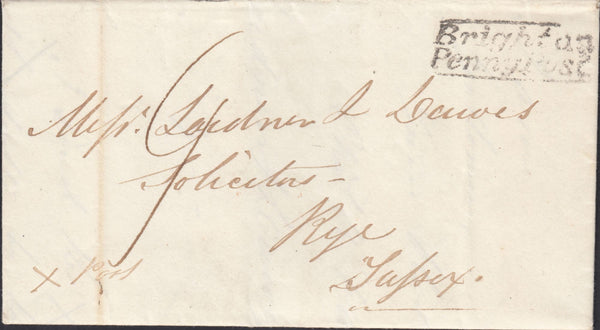 Brighton
Penny Post
9
Messrs. Lardner & Dawes
Solicitors
Rye
X Post
Sussex.